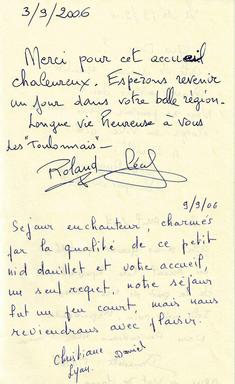 3/9/2006
Merci pour cet accueil
chaleureux. Espérons revenir
un jour dans votre belle région.
Longue vie heureuse à vous
Les "Toulonnais"-
Roland
9/9/06
Sejour enchanteur, charmés
par la qualité de ce petit
nid douillet et votre accueil,
un seul regret, notre séjour
fut un peu court, mais nous
reviendrons avec plaisir.
Christiane Daniel
Lyon.